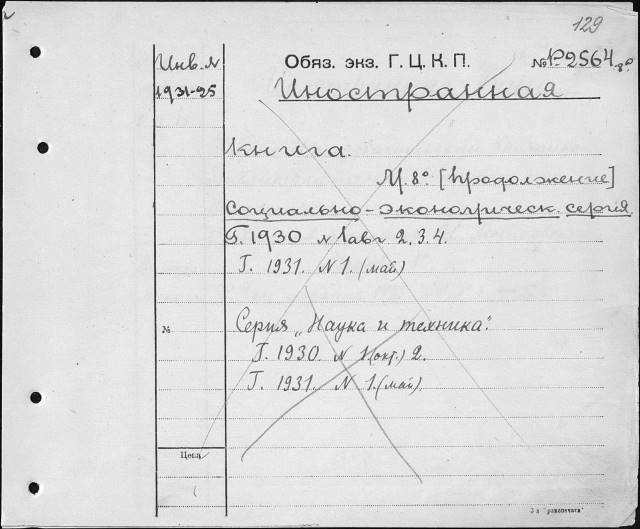 129
Инв. №
1931-25
Обяз. экз. Г. Ц. К. П.
№ Р2564 8°.
Иностранная
Книга.
М. 8°. [продолжение]
Социально-экономическ. серия.
Г. 1930 № 1авг 2. 3. 4.
Г. 1931. № 1. (май)
№
Серия "Наука и техника".
Г. 1930 № 1(окт.) 2.
Г. 1931. № 1. (май)
Цена